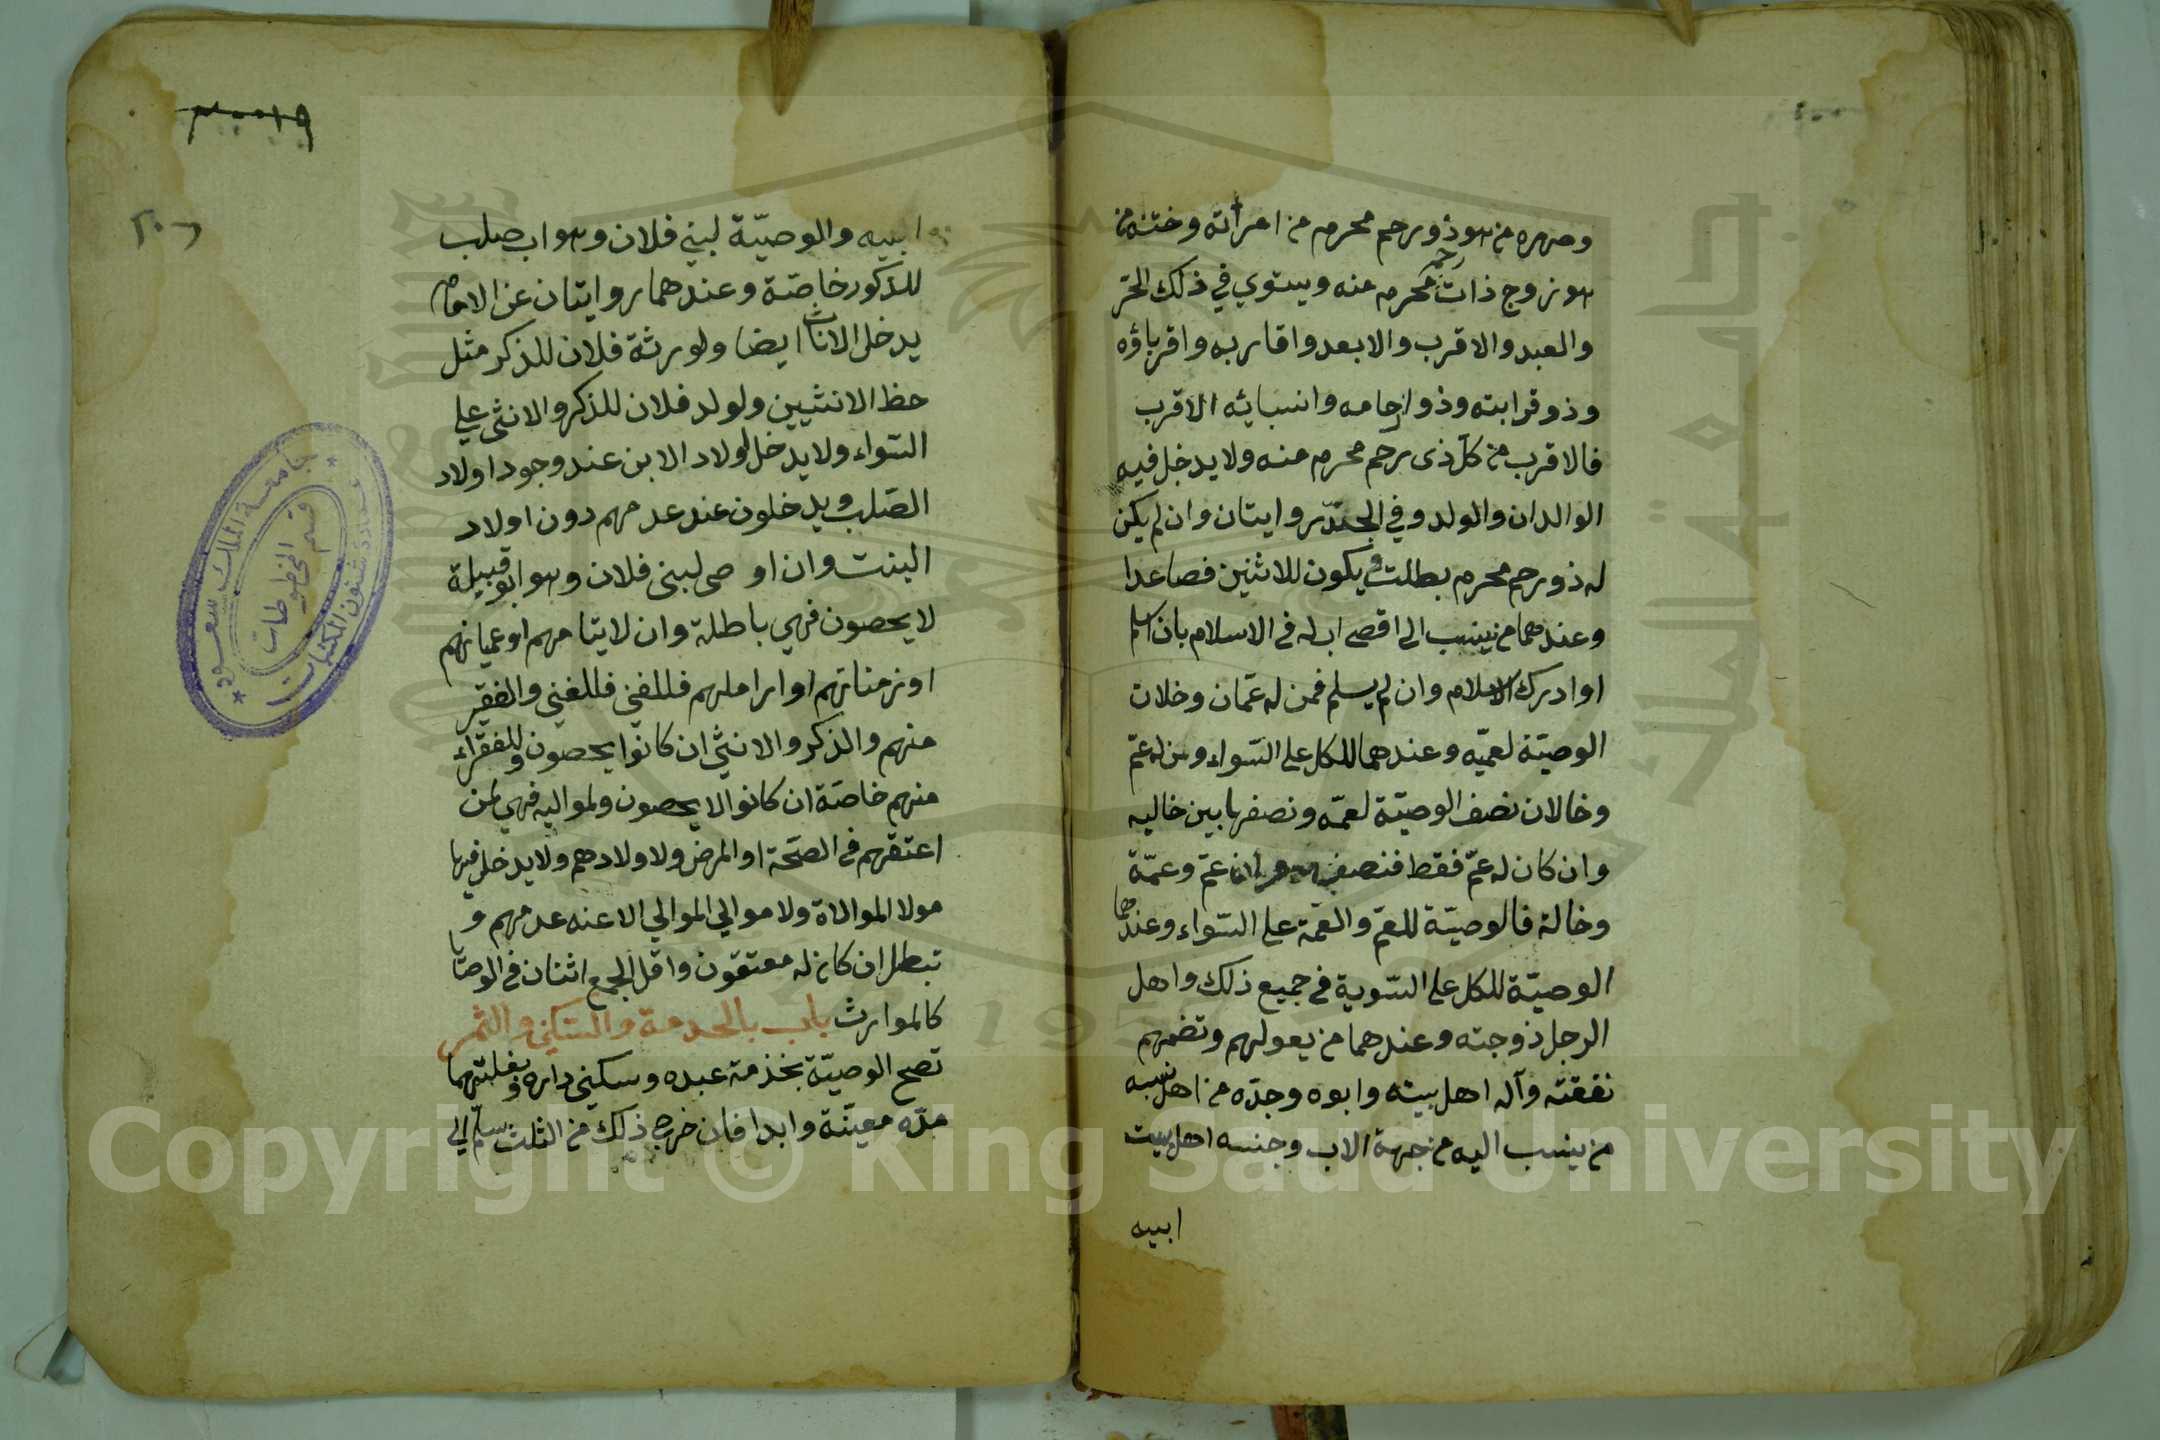 وصهره من هو ذو رحم محرم من امرأته وختنه من
هو زوج ذات رحم محرم منه ويستوي في ذلك الحر
والعبد والاقرب والابعد واقاربه واقرباؤه
وذو قرابته وذوا رحامه وانسبائه الاقرب
فالاقرب من كلّ ذى رحم محرم منه ولا يدخل فيه
الوالدان والولد وفي الجدّ روايتان وان لم يكن
له ذو رحم محرم بطلت ويكون للاثنين فصاعدا
وعندهما من ينسب الى اقصى اب له في الاسلام بان اسلم
او ادرك الاسلام وان لم يسلم فمن له عمّان وخلان
الوصيّة لعميّه وعندهما للكل على السّواء ومن له عمّ
وخالان نصف الوصيّة لعمّه ونصفها بين خاليه
وان كان له عمّ فقط فنصفها عمّ وعمّة
وخالة فالوصيّة للعمّ والعمّة على السّواء وعندهما
الوصيّة للكل على السّوية في جميع ذلك واهل
الرجل ذوجته وعندهما من يعولهم وتضمهم
نفقته وآله اهل بيته وابوه وجدّه من اهل نسبه
من ينسب اليه من جهة الاب وجنسه اهل بيت
ابيه
ابيه والوصيّة لبني فلان وهو اب صلب
للذكور خاصّة وعندهما روايتان عن الامام
يدخل الاناث ايضا ولورثة فلان للذكر مثل
حظ الانثيين ولولد فلان للذكر والانثى على
السّواء ولا يدخل اولاد الابن عند وجود اولاد
الصّلب ويدخلون عند عدمهم دون اولاد
البنت وان او صى لبنى فلان وهو ابو قبيلة
لا يحصون فهي باطلة وان لايتامهم او عميانهم
او زمناتهم او اراملهم فللغني فللغني والفقير
منهم والذكر والانثى ان كانوا يحصون وللفقراء
منهم خاصّة ان كانوا لا يحصون ولمواليه فهي لمن
اعتقهم في الصّحة او المرض ولاولادهم ولا يدخل فيها
مولا الموالاة ولا موالي الموالي الا عند عدمهم و
تبطل ان كان له معتقون واقل الجمع اثنان في الوصايا
كالموارث باب بالخدمة والسّكنى والثمر
تصح الوصيّة بخذمة عبده وسكنى داره وبغلتهما
مدّه معينّة وابدا فان خرج ذلك من الثلث سلّم الى
جامعة الملك سعود
عمادة شئون المكتبات
قسم المخطوطات
Copyright © King Saud University